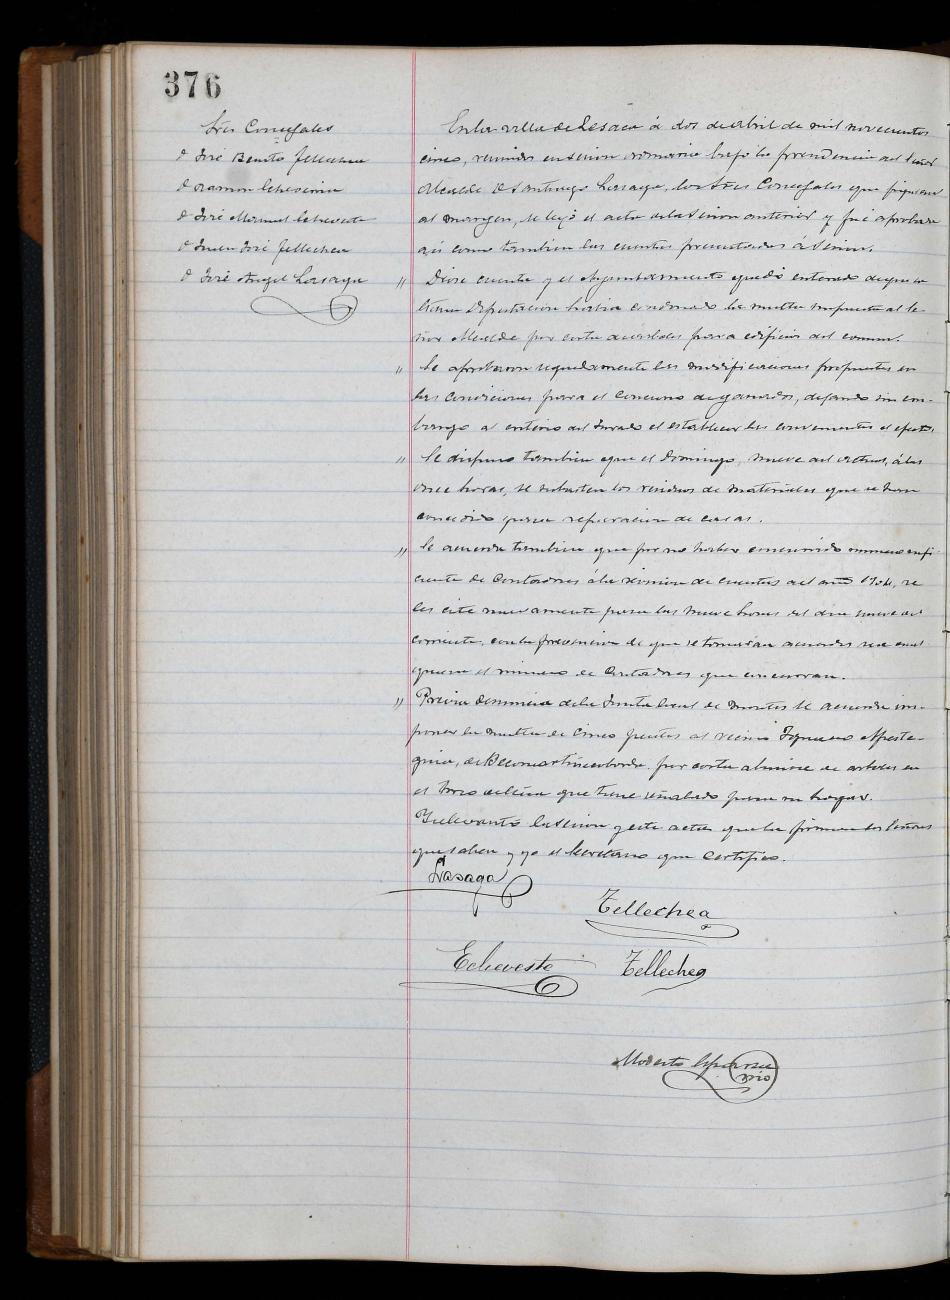 376
Sres Concejales
D José Benito Tellechea
D Ramon
D José Manuel Echeveste
D Juan José Tellechea
D José Angel Lasaga
En la villa de Lesaca á dos de abril de mil novecientos
cinco, reunidos en sesion ordinaria bajo la presidencia del Señor
Alcalde D Santiago Lasaga, los Sres Concejales que figuran
al margen, se leyó el acta de la sesion anterior y fué aprobada
asi como tambien las cuentas presentadas á sesion.
" Diose cuenta y el Ayuntamiento quedó enterado de que la
Excma Diputacion habia condonado la multa impuesta al Se-
ñor Alcalde por corta de arboles para edificios del comun.
" Se aprobaron seguidamente las modificaciones propuestas en
las condiciones para el Concurso de ganados, dejando sin em-
bargo al criterio del Jurado el establecer las convenientes al efecto.
" Se dispuso tambien que el Domingo, nueve del actual, á las
once horas, se subasten los residuos de materiales que se han
concedido para reparacion de casas.
" Se acuerda tambien que por no haber concurrido numero sufi-
ciente de Contadores á la revision de cuentas del año 1904, se
les cite nuevamente para las nueve horas del dia nueve del
corriente, con la prevencion de que se tomarán acuerdos sea cual
quiera el número de Contadores que concurran.
" Previa denuncia de la Junta local de Montes se acuerda im-
poner la multa de cinco pesetas al vecino Ignacio Apeste-
guia, de por corta abusiva de arboles en
el trozo de leña que tiene señalado para su hogar.
Y se levantó la sesion y esta acta que la firman los Señores
que saben y yo el Secretario que certifico.
Lasaga
Tellechea
Echeveste
Tellechea
Modesto
srio